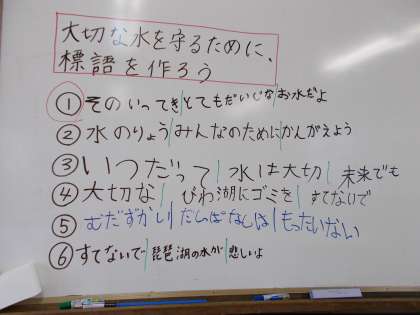 大切な水を守るために、
標語を作ろう
① そのいってき|とてもだいじな|お水だよ
② 水のりょう|みんなのために|かんがえよう
③ いつだって|水は大切|未来でも
④ 大切な|びわ湖にゴミを|すてないで
⑤ むだずかい|だしっぱなしは|もったいない
⑥ すてないで|琵琶湖の水が|悲しいよ